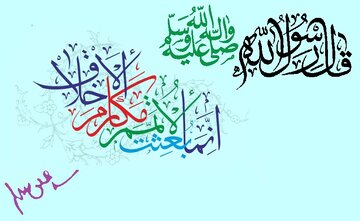 قال رسول الله
صلى الله عليه وآله وسلم
إنما بعثت لأتمم مكارم الأخلاق